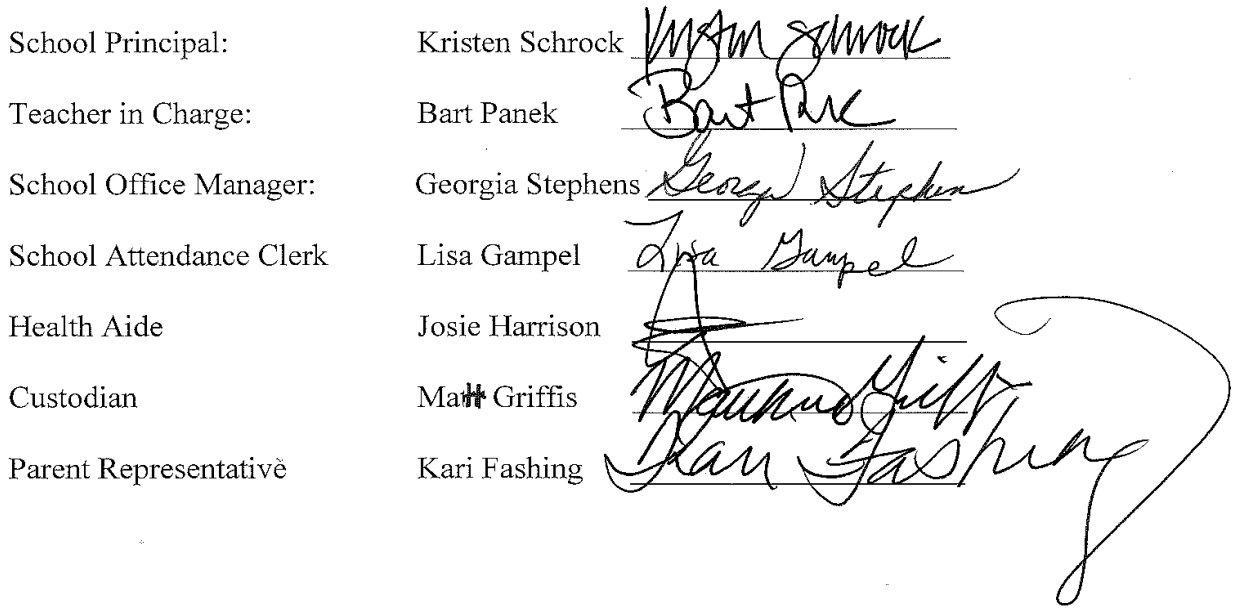 School Principal: Kristen Schrock Kristen Schrock
Teacher in Charge: Bart Panek Bart
School Office Manager: Georgia Stephens Georgia Stephens
School Attendance Clerk Lisa Gampel Lisa Gampel
Health Aide Josie Harrison
Custodian Matt Griffis
Parent Representative Kari Fashing Kari Fashing